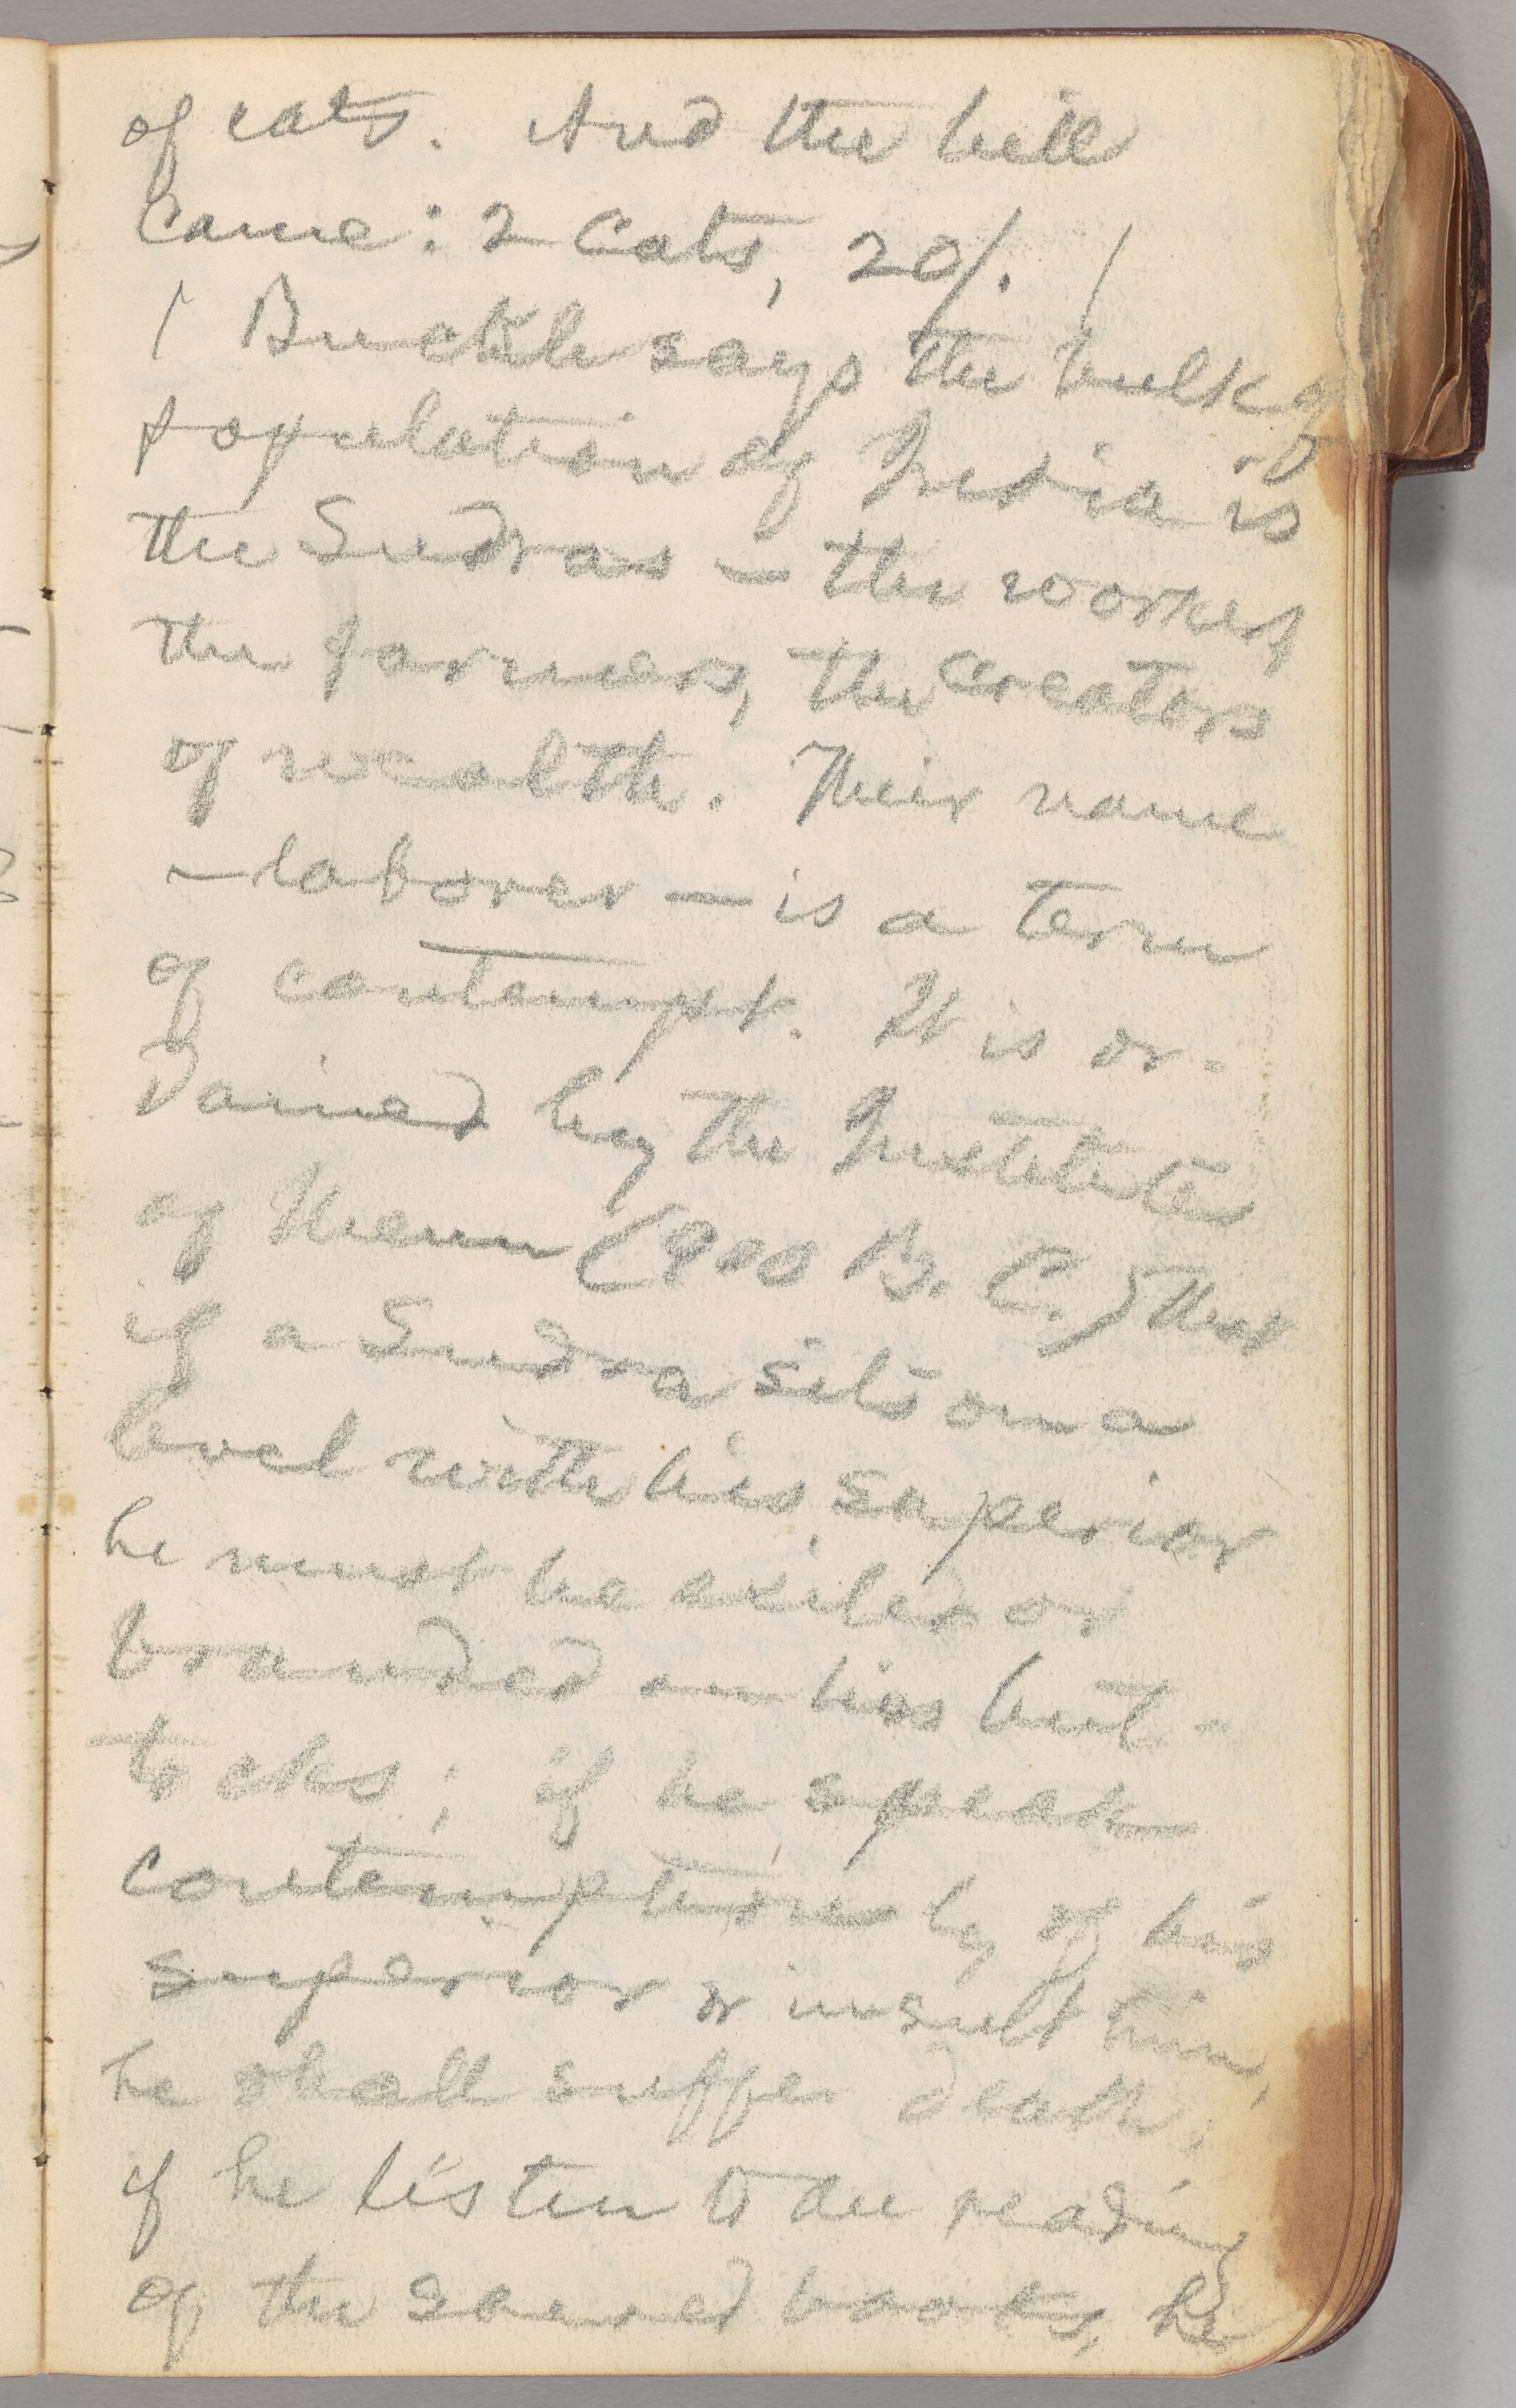 of cats. And the bill
came: 2 cats, 20/. /
/ Buckle says the bulk of
population of India is
the Sudras — the workers
the farmers, the creators
of wealth. Their name
— laborer — is a term
of contempt. It is or-
dained by the Institutes
of Menu (900 B. C.) that
if a Sudra sits on a
level with his superior
he must be exiled or
branded on his but-
tocks; if he speak
contemptuously of his
superior or insult him,
he shall suffer death;
if he listen to the reading
of the sacred books, he